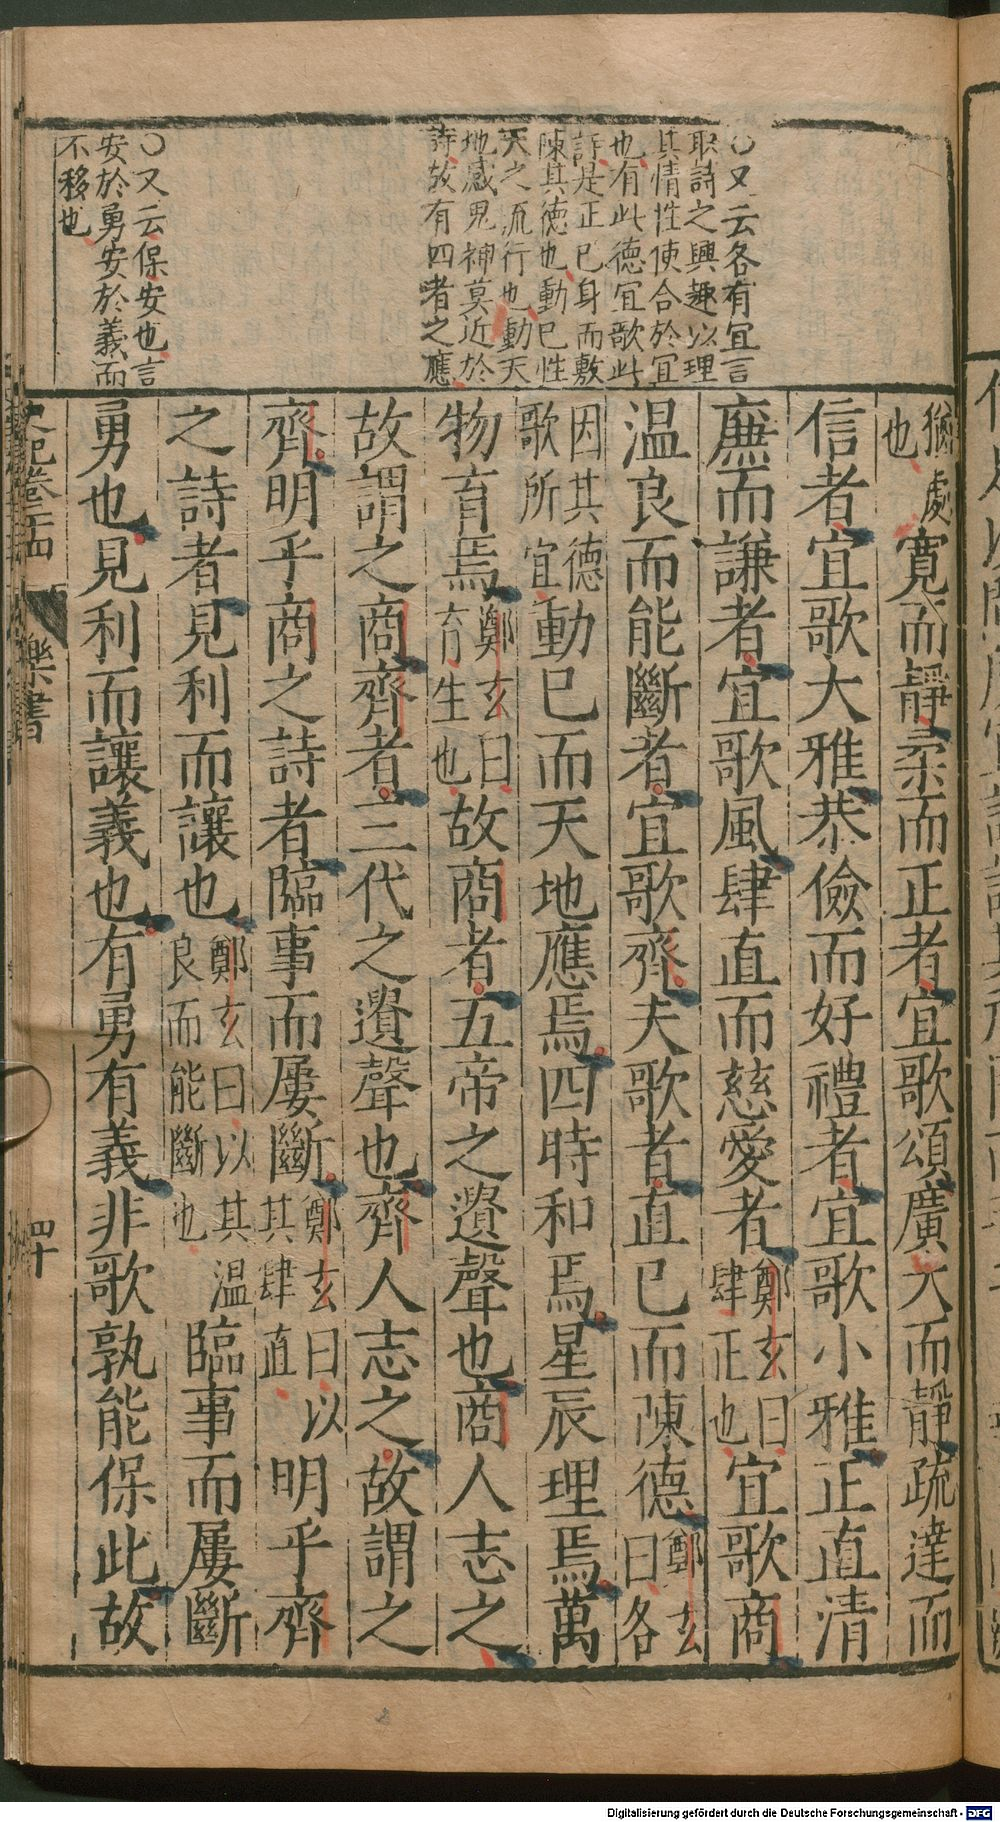 〇又云各有宜言
取詩之興趣以理
其情性使合於宜
也有此德宜歌此
詩是正已身而敷
陳其德也動已性
天之流行也動天
地感鬼神莫近於
詩故有四者之應
〇又云保安也言
安於勇安於義而
不移也
猶處也寬而靜柔而正者宜歌頌廣大而靜疏達而
信者宜歌大雅恭儉而好禮者宜歌小雅正直清
廉而謙者宜歌風肆直而慈愛者鄭玄曰肆正也宜歌商
温良而能斷者宜歌齊夫歌者直已而陳德鄭玄曰各
因其德歌所宜動已而天地應焉四時和焉星辰理焉萬
物育焉鄭玄曰育生也故商者五帝之遺聲也商人志之
故謂之商齊者三代之遺聲也齊人志之故謂之
齊明乎商之詩者臨事而屢斷鄭玄曰以其肆直明乎齊
之詩者見利而讓也鄭玄曰以其温良而能斷也臨事而屢斷
勇也見利而讓義也有勇有義非歌孰能保此故
史記卷二十四 樂書 四十
Digitalisierung gefördert durch die Deutsche Forschungsgemeinschaft - DFG